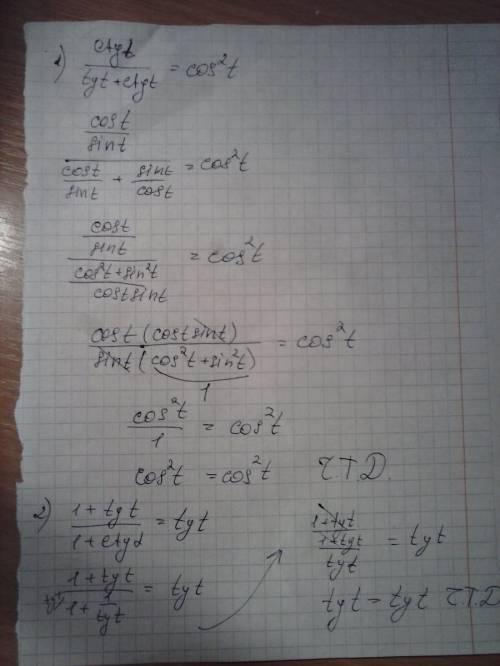 1) ctgt / (tgt + ctgt) = cos²t
(cost / sint) / (cost / sint + sint / cost) = cos²t
(cost / sint) / ((cos²t + sin²t) / (cost sint)) = cos²t
cost (cost sint) / (sint (cos²t + sin²t)) = cos²t
1
cos²t / 1 = cos²t
cos²t = cos²t Z.T.D.
2) (1 + tgt) / (1 + ctgt) = tgt
(1 + tgt) / (1 + 1 / tgt) = tgt
(1 + tgt) / ((1 + tgt) / tgt) = tgt
tgt = tgt Z.T.D